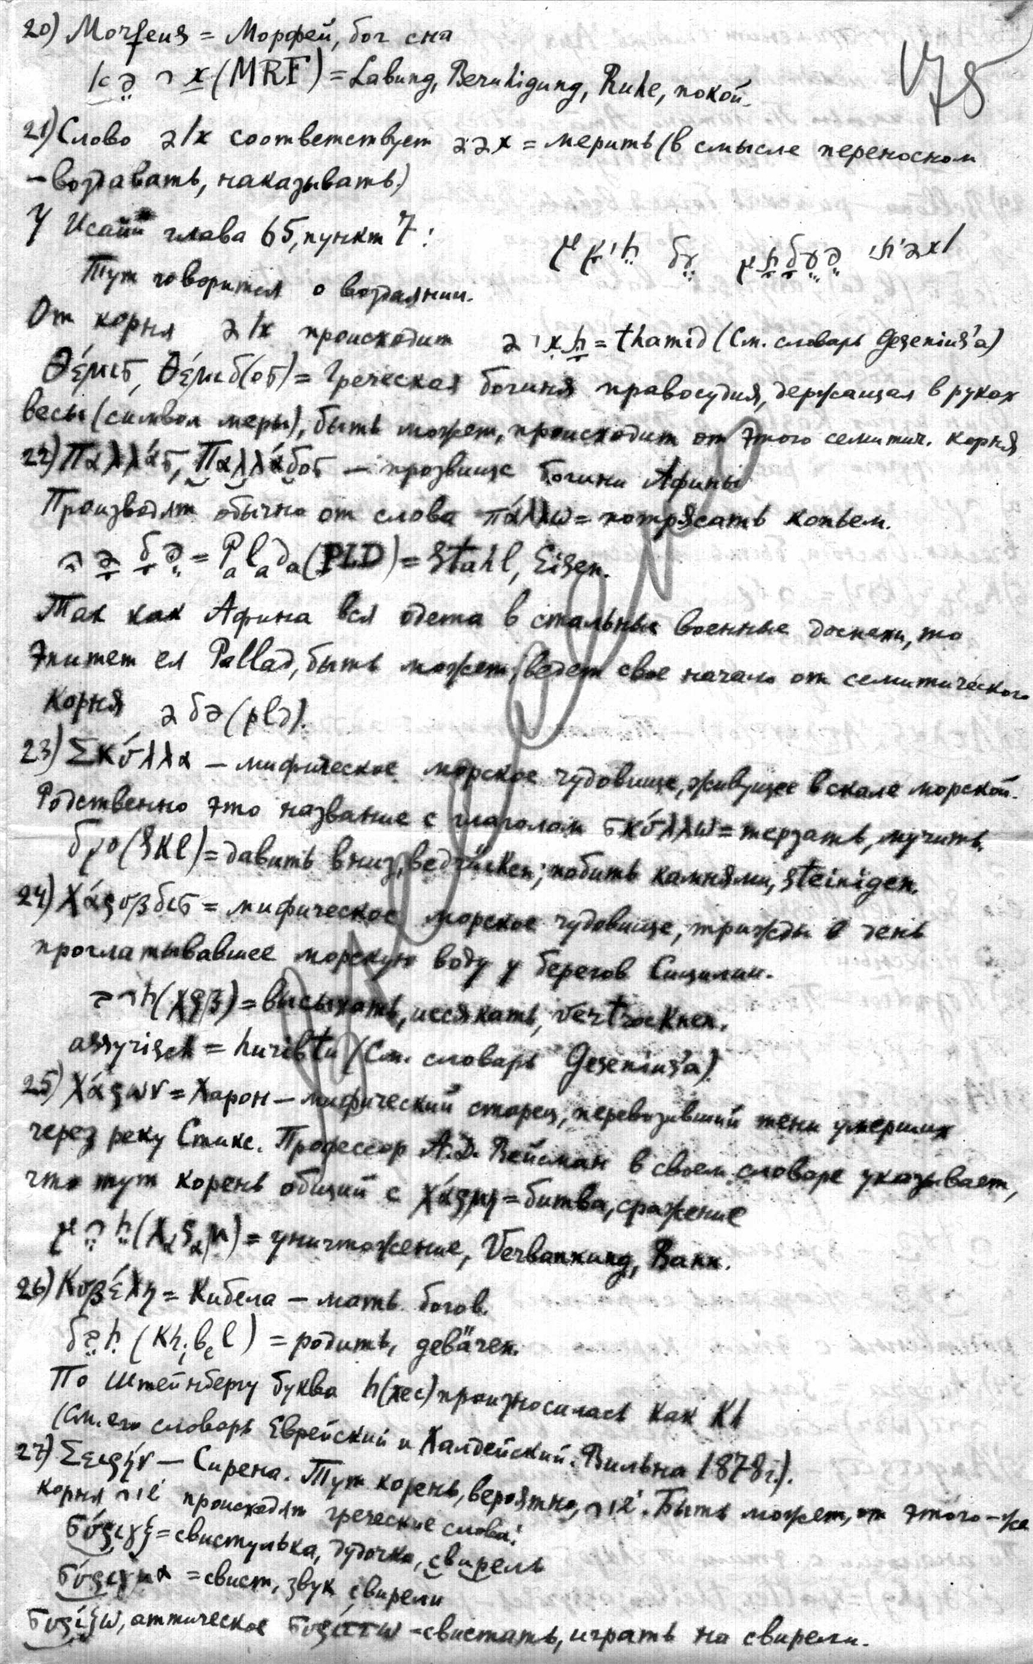 175
20) Morfeus = Морфей, бог сна
(MRF) = Labung, Beruhigung, Ruhe, покой.
21) Слово соответствует = мерить (в смысле переносном
– воздавать, наказывать)
У Исайи глава 65, пункт 7:
Тут говорится о воздаянии.
От корня происходит = thamid (См. словарь Gesenius'a)
Θέμις, Θέμιδ(ος) = Греческая богиня правосудия, держащая в руках
весы (символ меры), быть может, происходит от этого семитич. корня
22) Παλλάς, Παλλάδος – прозвище богини Афины
Производят обычно от слова πάλλω = потрясать копьем.
= Palada (PLD) = Stahl, Eisen.
Так как Афина вся одета в стальные военные доспехи, то
эпитет ея Pallad, быть может, ведет свое начало от семитического
корня (pld).
23) Σκύλλα – мифическое морское чудовище, живущее в скале морской.
Родственно это название с глаголом σκύλλω = терзать, мучить
(skl) = давить вниз, побить камнями, steinigen.
24) Χάρυβδις = мифическое морское чудовище, трижды в день
проглатывавшее морскую воду у берегов Сицилии.
(χρβ) = высыхать, иссякать, vertrocknen.
assyrisch = huribtu (См. словарь Gesenius'a).
25) Χάρων = Харон – мифический старец, перевозивший тени умерших
через реку Стикс. Профессор А.Д. Вейсман в своем словаре указывает,
что тут корень общий с χάρμη = битва, сражение
= уничтожение, Verbannung, Bann.
26) Κυβέλη = Кибела – мать богов.
(Khibel) = родить,
По Штейнбергу буква h (хес) произносилась как Kh
(См. его словарь Еврейский и Халдейский. Вильна 1878 г.).
27) Σειρήν – Сирена. Тут корень, вероятно, שיר. Быть может, от этого-же
корня שיר происходят греческие слова:
σύριγξ = свистулька, дудочка, свирель
σύριγμα = свист, звук свирели
συρίζω, аттическое συρίττω – свистать, играть на свирели.